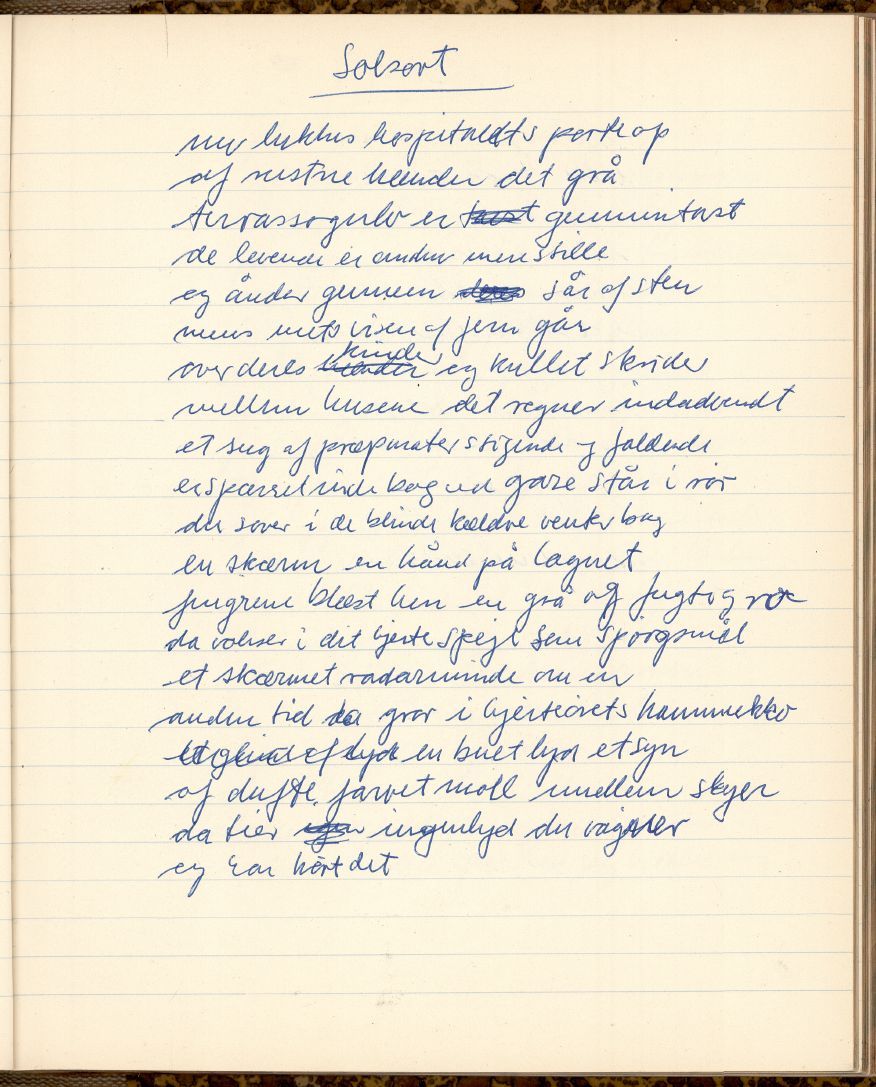 Solsort
nu lukkes hospitalets port op
af rustne hænder det grå
terrassogulv er tavst gummitavst
de levende er andre men stille
og ånder gennem deres sår af sten
mens urets visen af jern går
over deres hænder kinder og kullet skrider
mellem husene det regner indadvendt
et sug af præparater stigende og faldende
bag gaze står i rør
du sover i de blinde kældre venter bag
en skærm en hånd på lagnet
blæst hen en grå og fugtig
da vokser i dit hjerte spejl som spörgsmål
et skærmet radarminde om en
anden tid da gror i hjerteörets hammerekko
en buet lyd et syn
af dufte, farvet moll imellem skyer
da tier ingen lyd du vågner
og har hört det